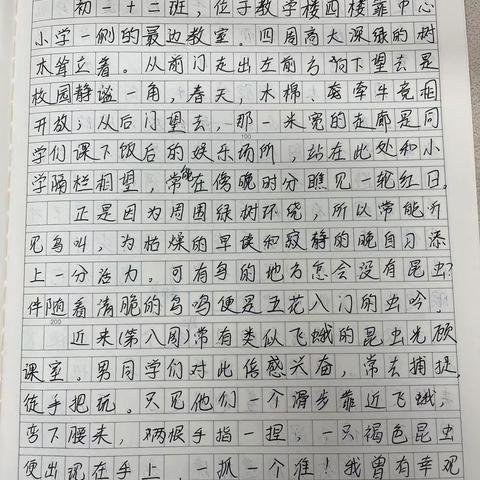 初一十二班，位于教学楼四楼靠中心
小学一侧的最边教室。四周高大深绿的树
木耸立着。从前门走出左前方向下望去是
校园静谧一角，春天，木棉、牵牛竞相
开放；从后门望去，那一米宽的走廊是同
100
学们课下饭后的娱乐场所，站在此处和小
学隔栏相望，常能在傍晚时分瞧见一轮红日。
正是因为周围绿树环绕，所以常能听
见鸟叫，为枯燥的早读和寂静的晚自习添
上一分活力。可有鸟的地方怎会没有昆虫？
伴随着清脆的鸟鸣便是五花入门的虫吟。
200
近来(第八周)常有类似飞蛾的昆虫光顾
课室。男同学们对此倍感兴奋，常去捕捉，
徒手把玩。只见他们一个滑步靠近飞蛾，
弯下腰来，两根手指一捏，一只褐色昆虫
便出现在手上，一抓一个准！我曾有幸观